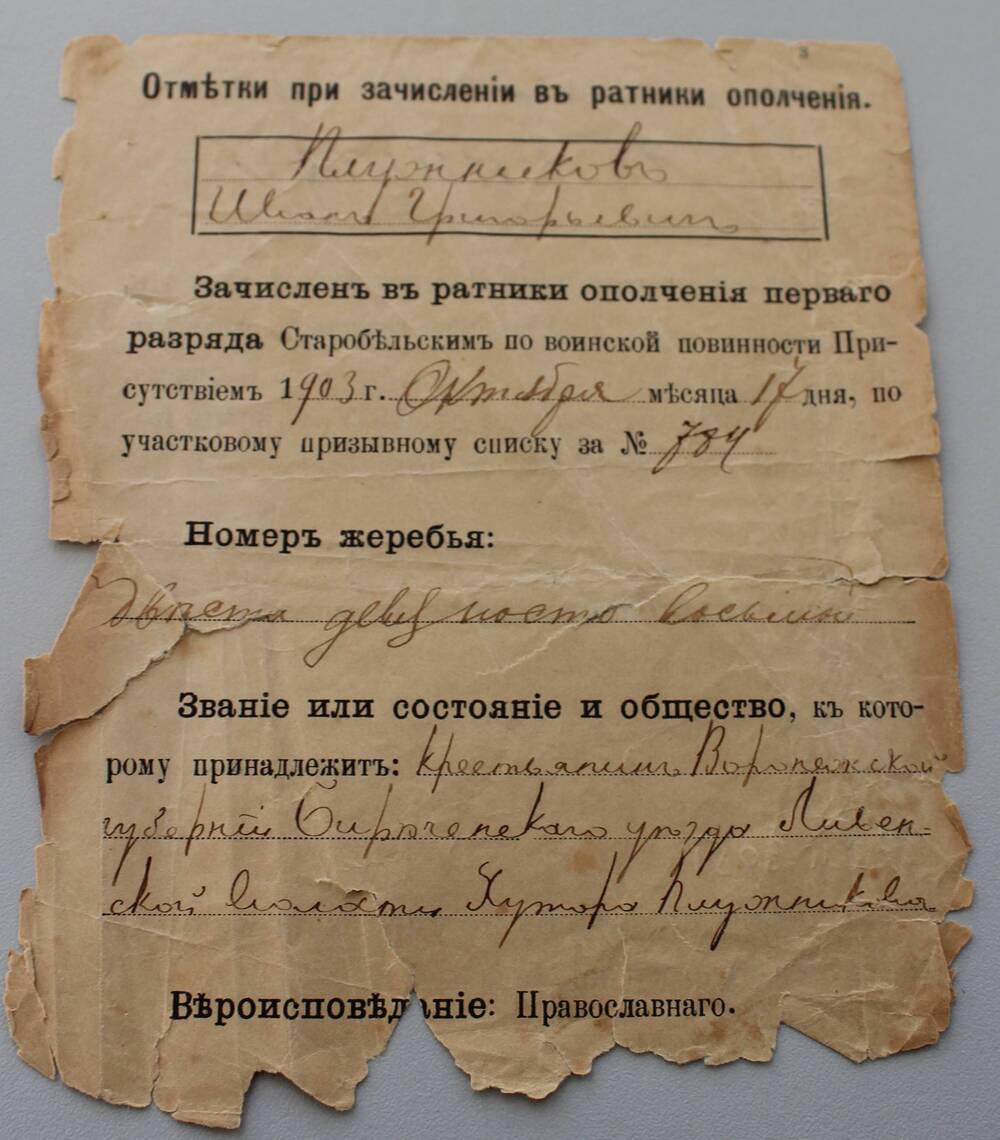 3
Отмѣтки при зачисленіи въ ратники ополченія.
Плужниковъ
Иванъ Григорьевичъ
Зачисленъ въ ратники ополченія перваго
разряда Старобѣльскимъ по воинской повинности При-
сутствіемъ 1903 г. Октября мѣсяца 17 дня, по
участковому призывному списку за № 784
Номеръ жеребья:
Двѣсти девяносто восьмый
Званіе или состояніе и общество, къ кото-
рому принадлежитъ: крестьянинъ Воронежской
губерніи Бирюченскаго уѣзда Ливен-
ской волости Хутора Плужникова
Вѣроисповѣданіе: Православнаго.